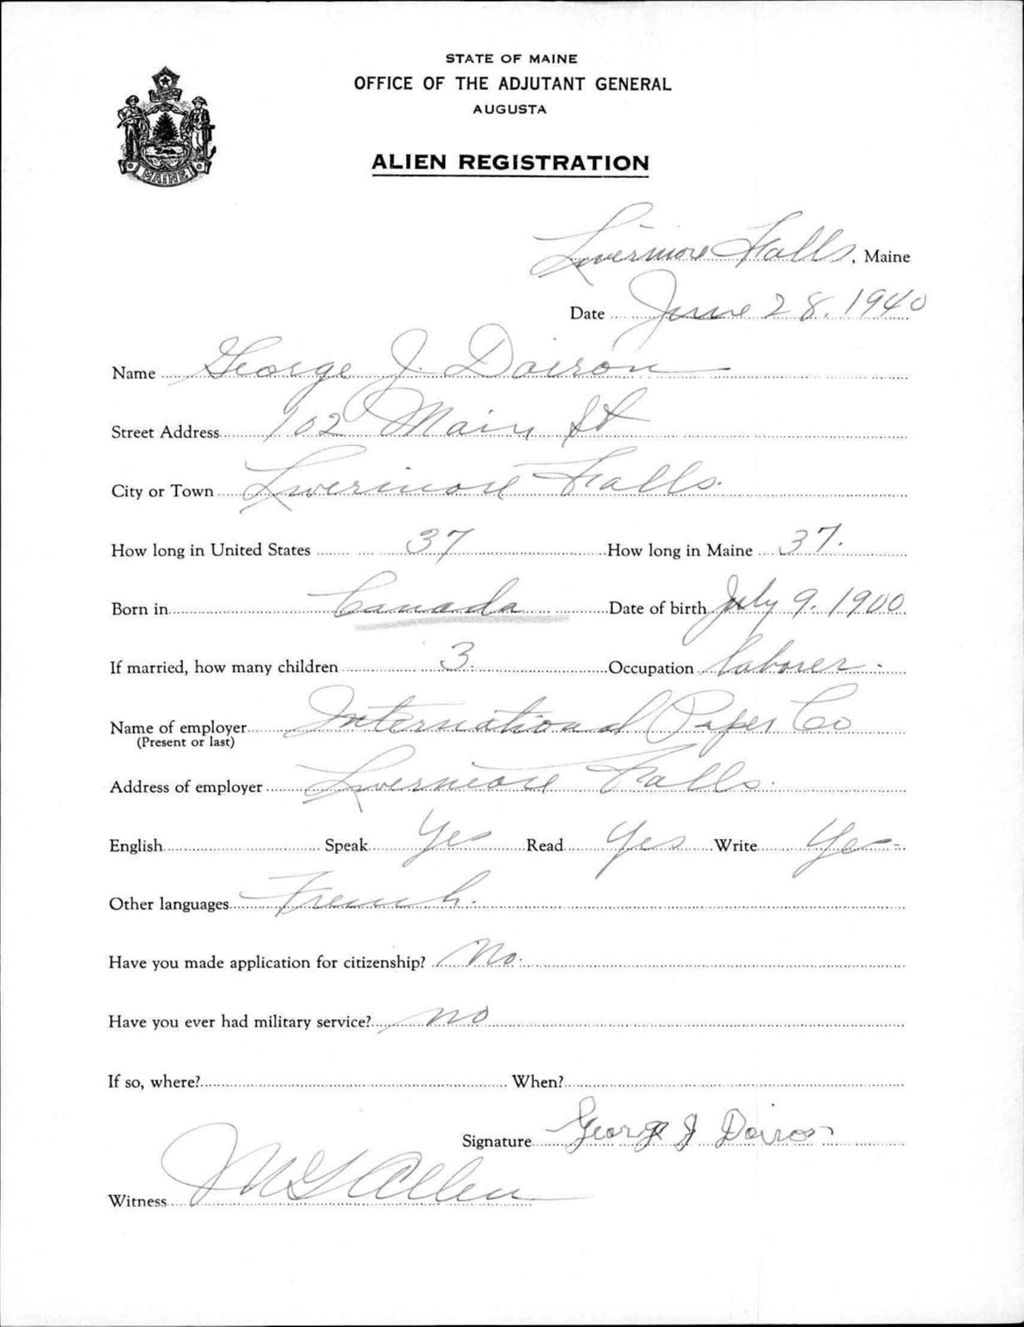 STATE OF MAINE
OFFICE OF THE ADJUTANT GENERAL
AUGUSTA
MAINE
ALIEN REGISTRATION
Livermore Falls, Maine
Date June 28, 1940
Name George J. Doiron
Street Address 102 Main St
City or Town Livermore Falls.
How long in United States 37 How long in Maine 37.
Born in Canada Date of birth July 9, 1900
If married, how many children 3. Occupation laborer.
Name of employer International Paper Co
(Present or last)
Address of employer Livermore Falls.
English Speak Yes Read Yes Write Yes
Other languages French.
Have you made application for citizenship? No.
Have you ever had military service? no
If so, where? When?
Signature George J Doiron
Witness Allen